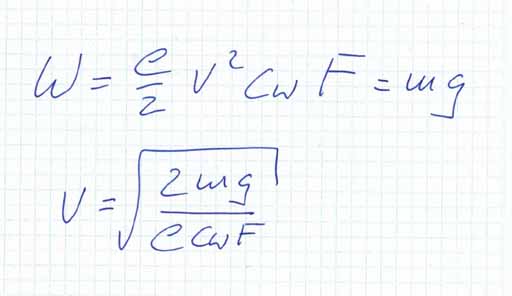 W = ρ/2 v² cw F = mg
v = √(2mg / ρ cw F)